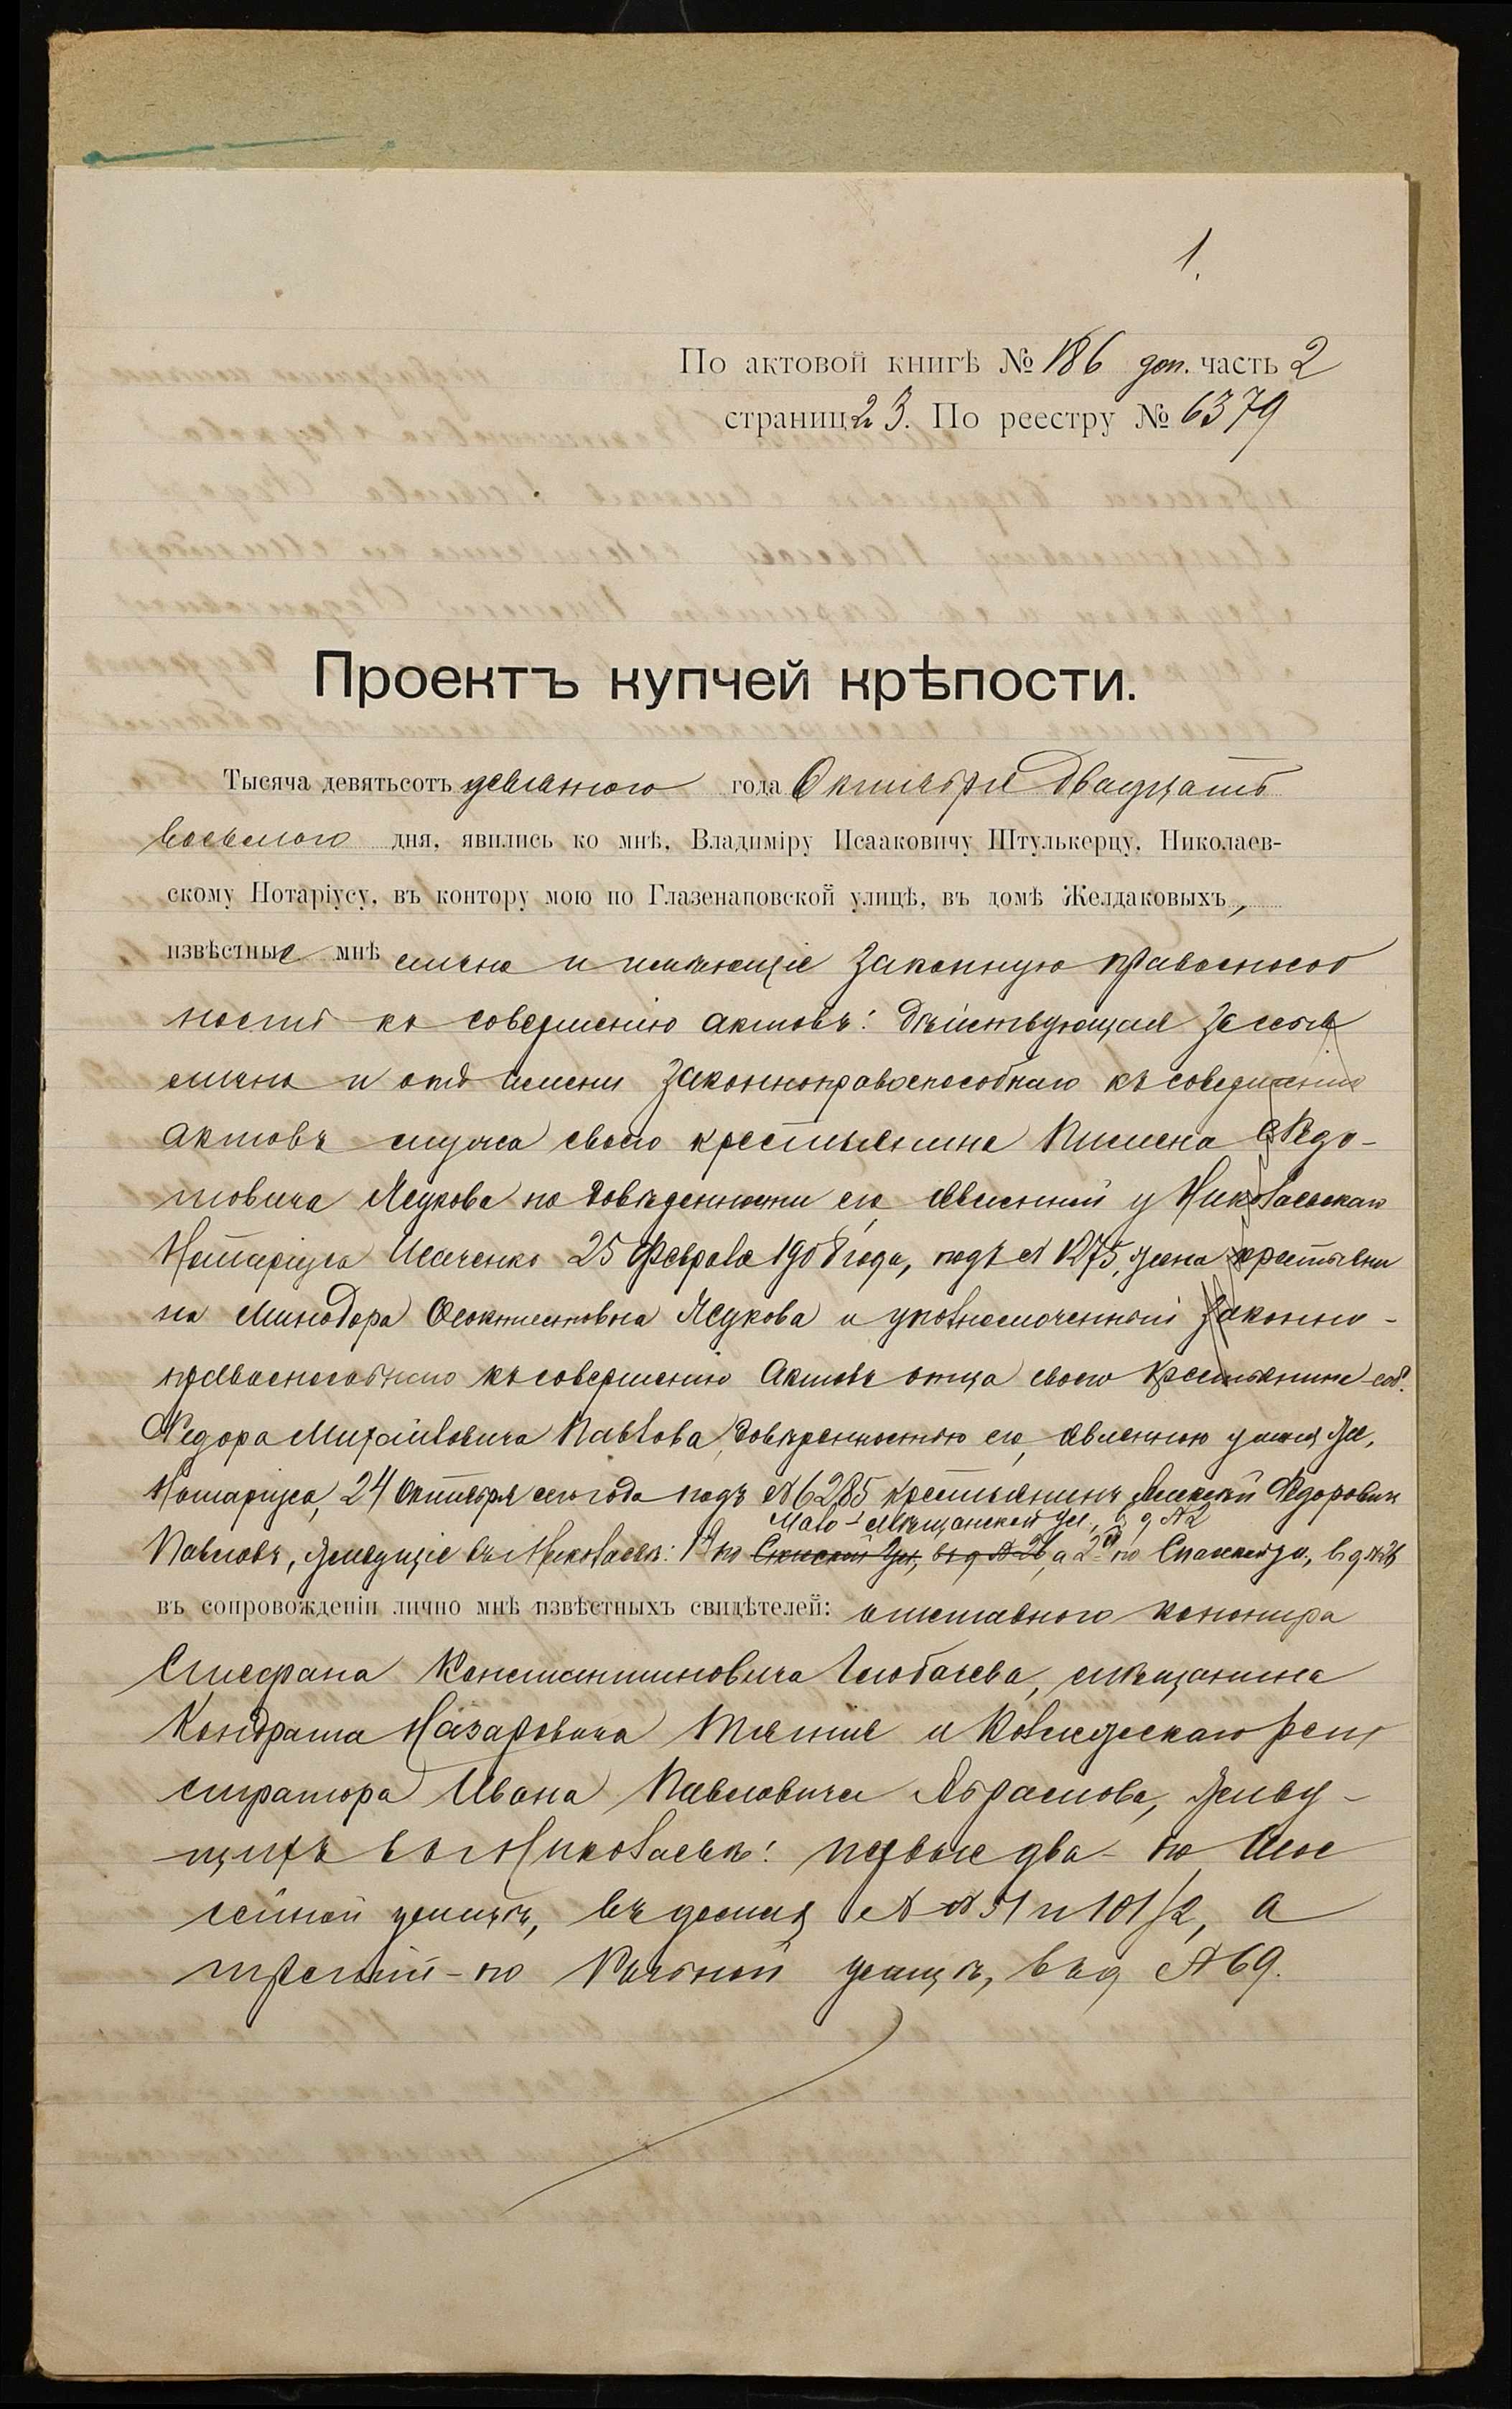 1.
По актовой книгѣ № 186 доп. часть 2
страниц 23. По реестру № 6379
Проектъ купчей крѣпости.
Тысяча девятьсотъ девятого года Октября двадцать
восьмого дня, явились ко мнѣ, Владиміру Исааковичу Штулькерцу, Николаев-
скому Нотаріусу, въ контору мою по Глазенаповской улицѣ, въ домѣ Желдаковыхъ,
извѣстные мнѣ лично и имѣющіе законную правоспособ
ность къ совершенію актовъ: дѣйствующая за себя
лично и отъ имени законноправоспособнаго къ совершенію
актовъ мужа своего крестьянина Пимена Ѳедо-
товича Ясукова по довѣренности его, явленной у Николаевскаго
Нотаріуса Исаченко 25 Февраля 1908 года, подъ № 1275, жена крестьяни
на Минодора Ѳеоктистовна Ясукова и уполномоченный законно-
правоспособнаго къ совершенію актовъ отца своего крестьянина соб.
Ѳедора Михайловича Павлова, довѣренностью его, явленною у меня же,
Нотаріуса, 24 Октября сего года подъ № 6285 крестьянинъ Алексѣй Ѳедоровичъ
Мало-Мѣщанской ул., въ д № 2
Павловъ, живущіе въ г. Николаевѣ: 1й по Спасской ул, въ д № 26, а 2й по Спасской ул., въ д № 26
въ сопровожденіи лично мнѣ извѣстныхъ свидѣтелей: отставного канонира
Стефана Константиновича Голобачева, мѣщанина
Кондрата Назаровича и Коллежскаго реги
стратора Ивана Павловича Абрамова, живу-
щихъ въ г. Николаевѣ: первые два по
сейной улицѣ, въ домахъ №№ 51 и 101/2, а
третій - по улицѣ, въ д № 69.